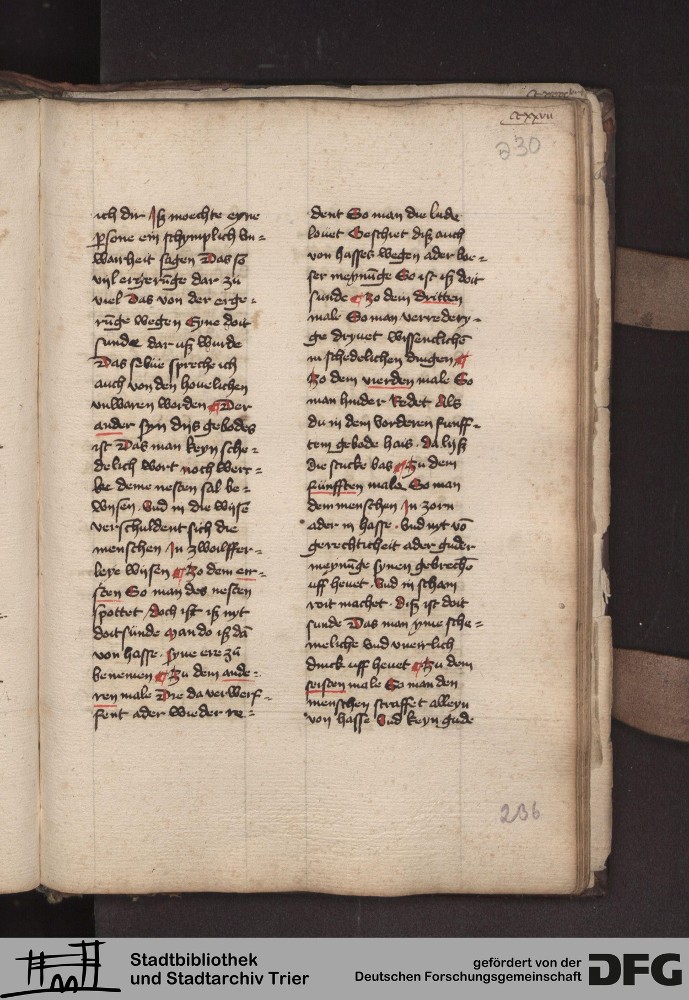 ccxxvii
230
ich dir Jß moechte eyne
ꝑsone ein schymplich vn-
wairheit sagen Das so
viil ergerūge dar zů
viel Das von der erge-
rūge wegen Eyne doit
sunde dar uß wurde
Das selue spreche ich
auch von den houelichen
vnwaren worden ¶ Der
ander syn dis gebodes
ist Das man keyn sche-
delich wort noch werc-
ke deme nesten sal be-
wysen · Vnd in die wyse
verschuldent sich die
menschen Jn zwoilffer-
leye wysen ¶ Zo dem eir-
sten So man des nesten
spottet / doch ist iß nyt
doitsünde Man do iß dā
von hasse · syne ere zů
benemen ¶ Zu dem ande-
ren male Die da verwerf-
fent ader wieder re-
dent So man die lude
louet Geschiet diß auch
von hasses wegen ader boe-
ser meynūge So ist iß doit
sunde ¶ Zo dem dritten
male So man verredery-
ge dryuet wissencliche
in schedelichen dingen ¶
Zo dem vierden male So
man hinder Redet Als
du in dem vorderen funff-
tem gebode hais · da lyß
die stucke bas ¶ Zu dem
fünfften male So man
dem menschen Jn zorn
ader in hasse · Vnd nyt vō
gerechticheit ader guder
meynūge synen gebrechē
uff heuet · Vnd in scham
roit machet · Diß ist doit
sunde Das man yme sche-
meliche Vnd vneirlich
dinck uff heuet ¶ Zu dem
seisten male So man den
menschen straffet alleyn
von hasse Vnd keyn gude
236
Stadtbibliothek
und Stadtarchiv Trier
gefördert von der
Deutschen Forschungsgemeinschaft
DFG